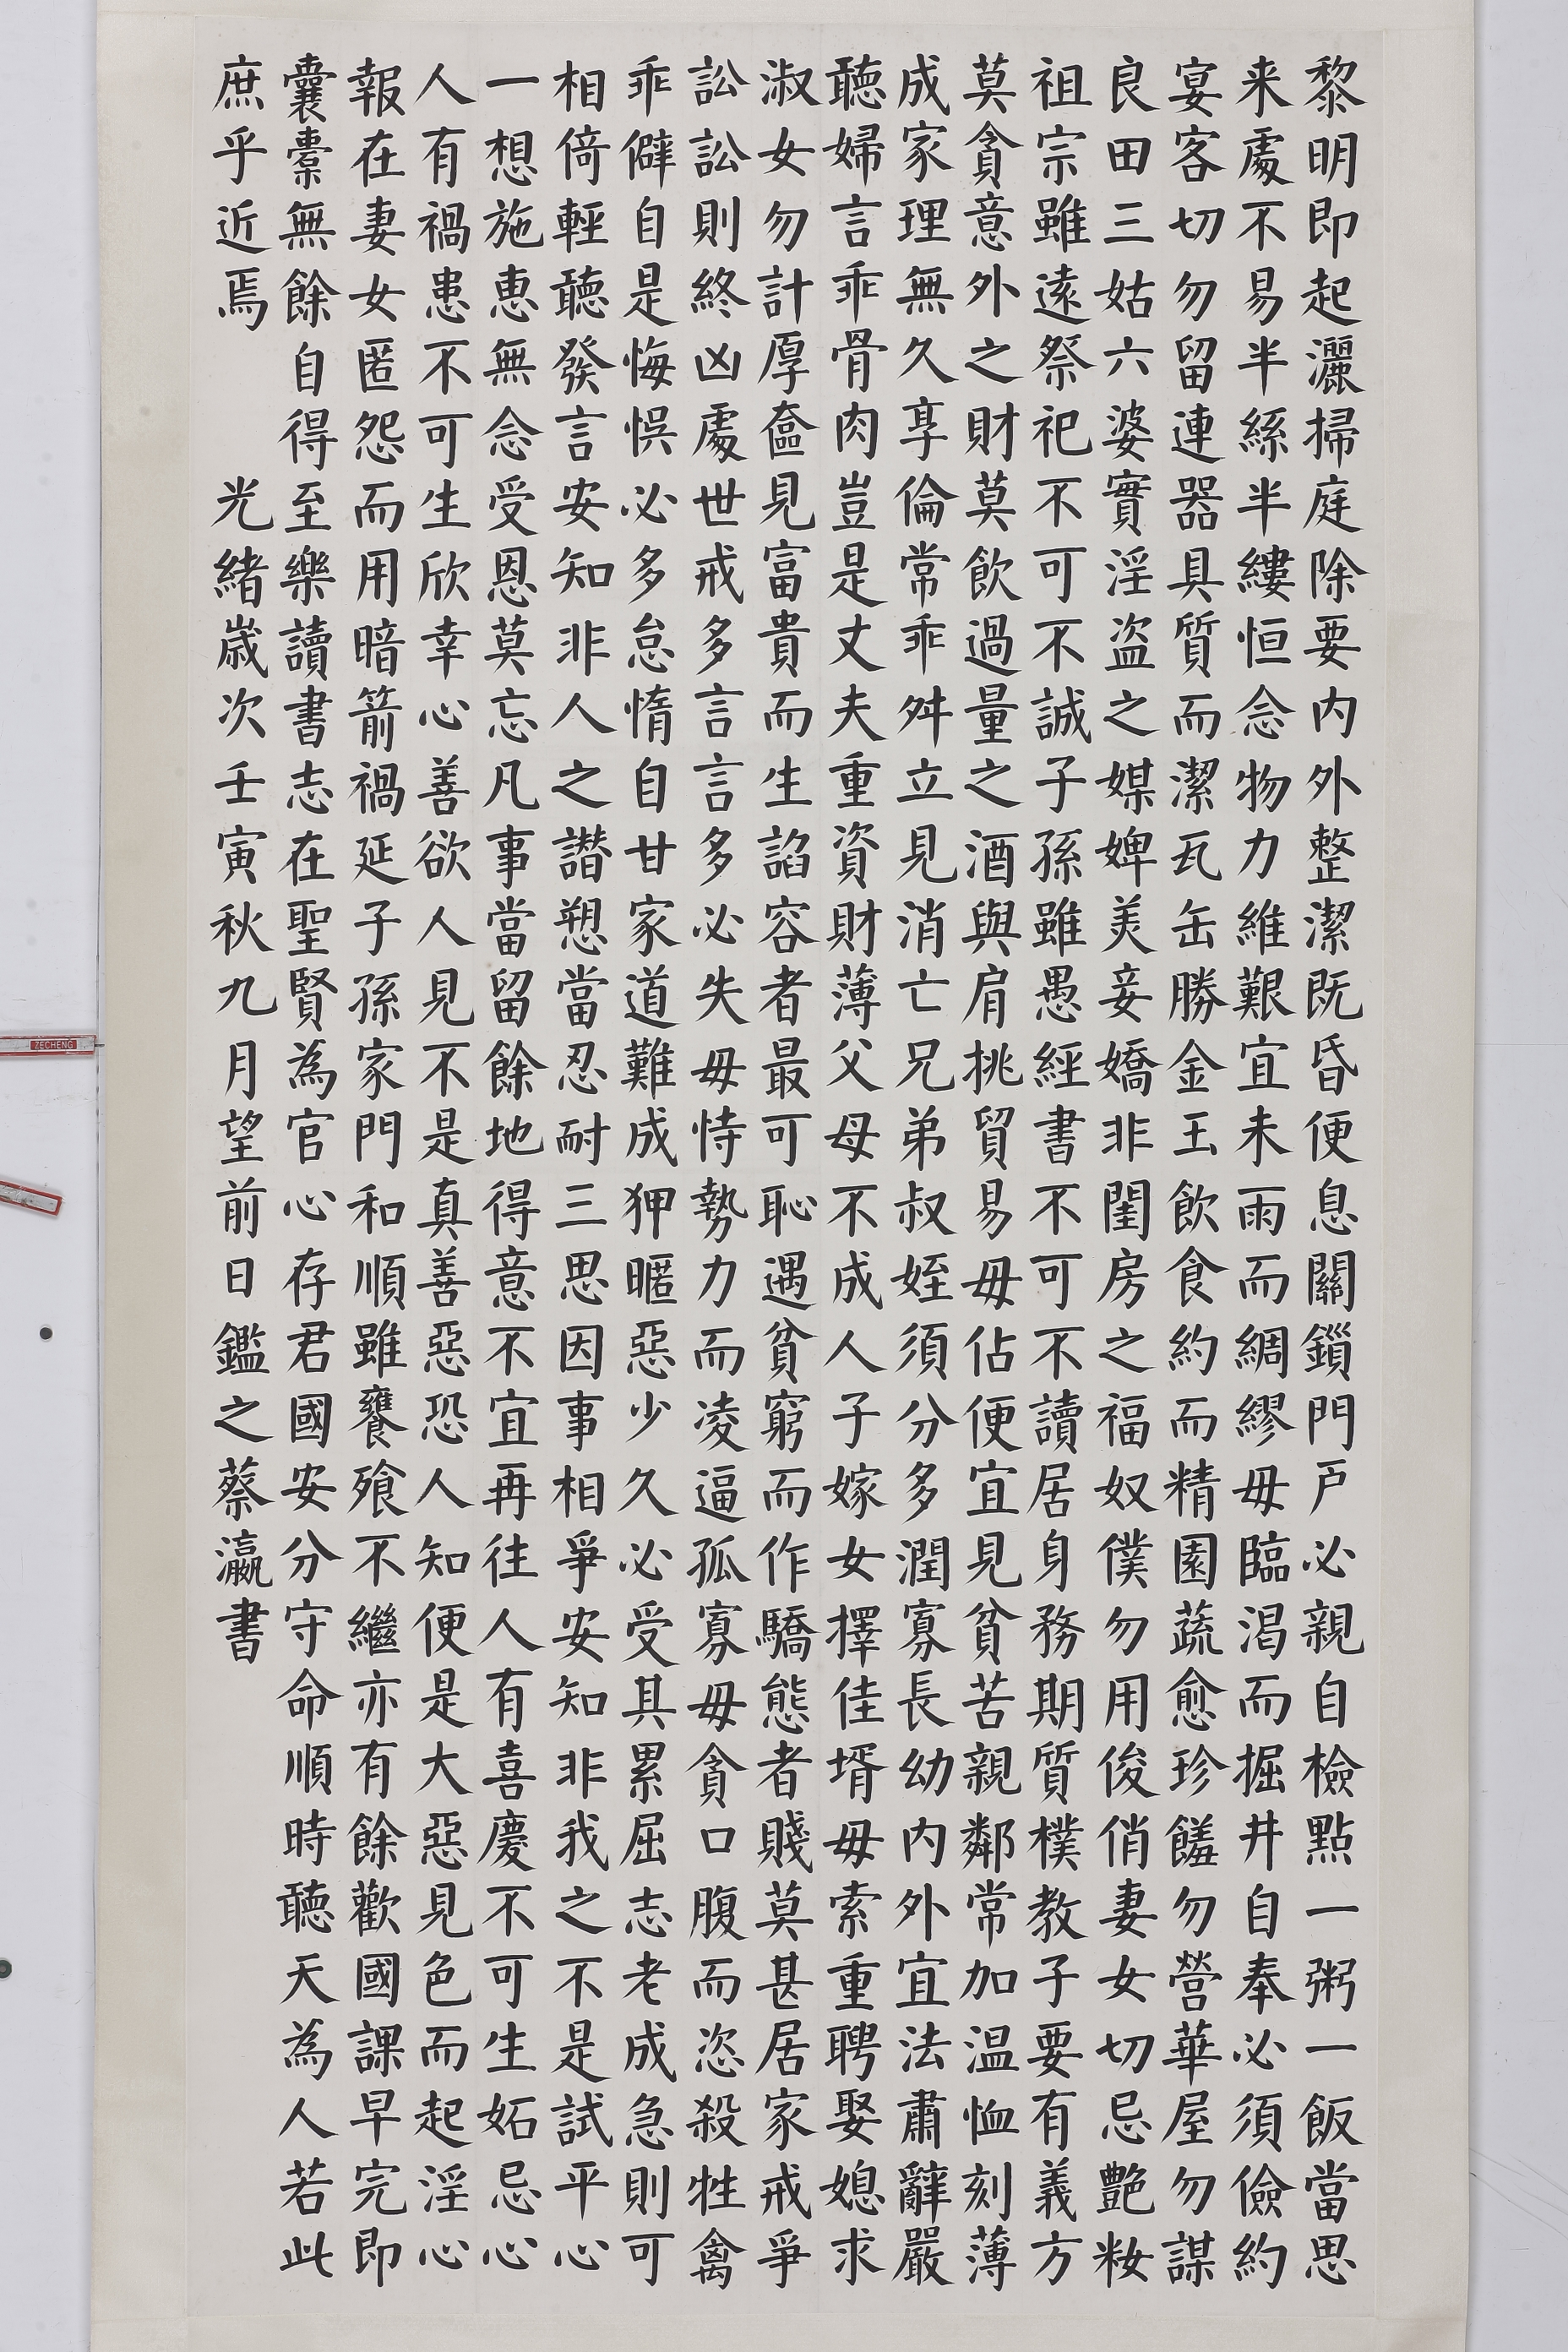 黎明即起灑掃庭除要内外整潔既昏便息關鎖門户必親自檢點一粥一飯當思
来處不易半絲半縷恒念物力維艱宜未雨而綢繆毋臨渴而掘井自奉必須儉約
宴客切勿留連器具質而潔瓦缶勝金玉飲食約而精園蔬愈珍饈勿營華屋勿謀
良田三姑六婆實淫盗之媒婢美妾嬌非閨房之福奴僕勿用俊俏妻女切忌艷籹
祖宗雖遠祭祀不可不誠子孫雖愚經書不可不讀居身務期質樸教子要有義方
莫貪意外之財莫飲過量之酒與肩挑貿易毋佔便宜見貧苦親鄰常加温恤刻薄
成家理無久享倫常乖舛立見消亡兄弟叔姪須分多潤寡長幼内外宜法肅辭嚴
聽婦言乖骨肉豈是丈夫重資財薄父母不成人子嫁女擇佳壻毋索重聘娶媳求
淑女勿計厚奩見富貴而生諂容者最可恥遇貧窮而作驕態者賤莫甚居家戒爭
訟訟則終凶處世戒多言言多必失毋恃勢力而凌逼孤寡毋貪口腹而恣殺牲禽
乖僻自是悔悞必多怠惰自甘家道難成狎暱惡少久必受其累屈志老成急則可
相倚輕聽發言安知非人之譖愬當忍耐三思因事相爭安知非我之不是試平心
一想施惠無念受恩莫忘凡事當留餘地得意不宜再往人有喜慶不可生妬忌心
人有禍患不可生欣幸心善欲人見不是真善惡恐人知便是大惡見色而起淫心
報在妻女匿怨而用暗箭禍延子孫家門和順雖饔飧不繼亦有餘歡國課早完即
囊橐無餘自得至樂讀書志在聖賢為官心存君國安分守命順時聽天為人若此
庶乎近焉 光緒歲次壬寅秋九月望前日鑑之蔡瀛書
ZECHENG